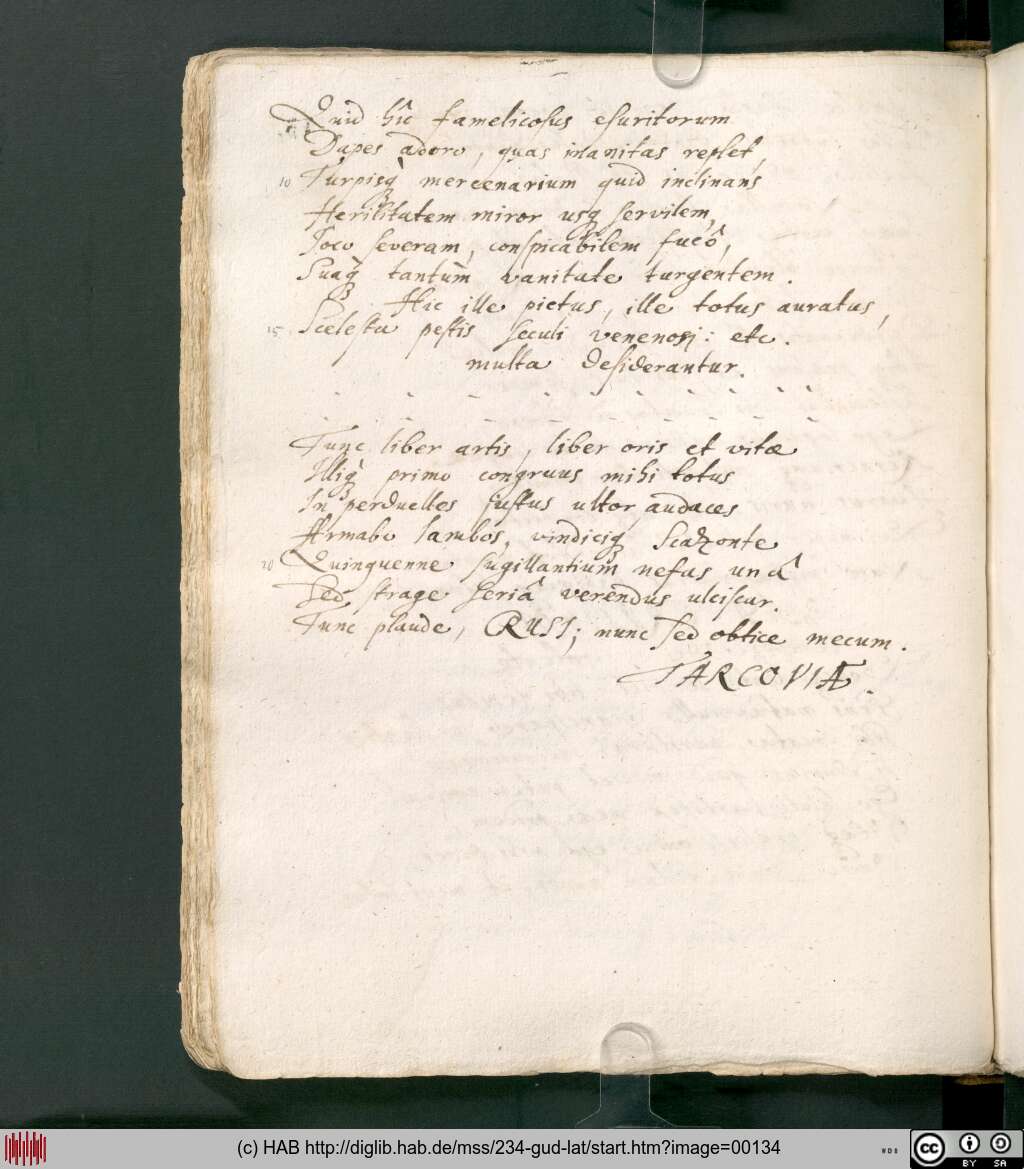 Quid hîc famelicosus esuritorum
Dapes adoro, quas inanitas replet,
10 Turpisq̀ mercenarium quid inclinans
Herilitatem miror usq servilem,
Joco severam, conspicabilem fucô,
Suaq̀ tantùm vanitate turgentem.
Hic ille pictus, ille totus auratus,
15 Scelesta pestis seculi venenosi: etc.
multa desiderantur.
Tunc liber artis, liber oris et vitæ
Illiq̀ primo congruus mihi totus
In perduelles justus ultor audaces
Armabo Iambos, vindiciq Scazonte
20 Quinquenne sugillantium nefas unâ
Sed strage seriâ verendus ulciscar.
Tunc plaude, CRUSI; nunc sed obtice mecum.
TARCOVIÆ.
(c) HAB http://diglib.hab.de/mss/234-gud-lat/start.htm?image=00134
WDB
cc
BY SA